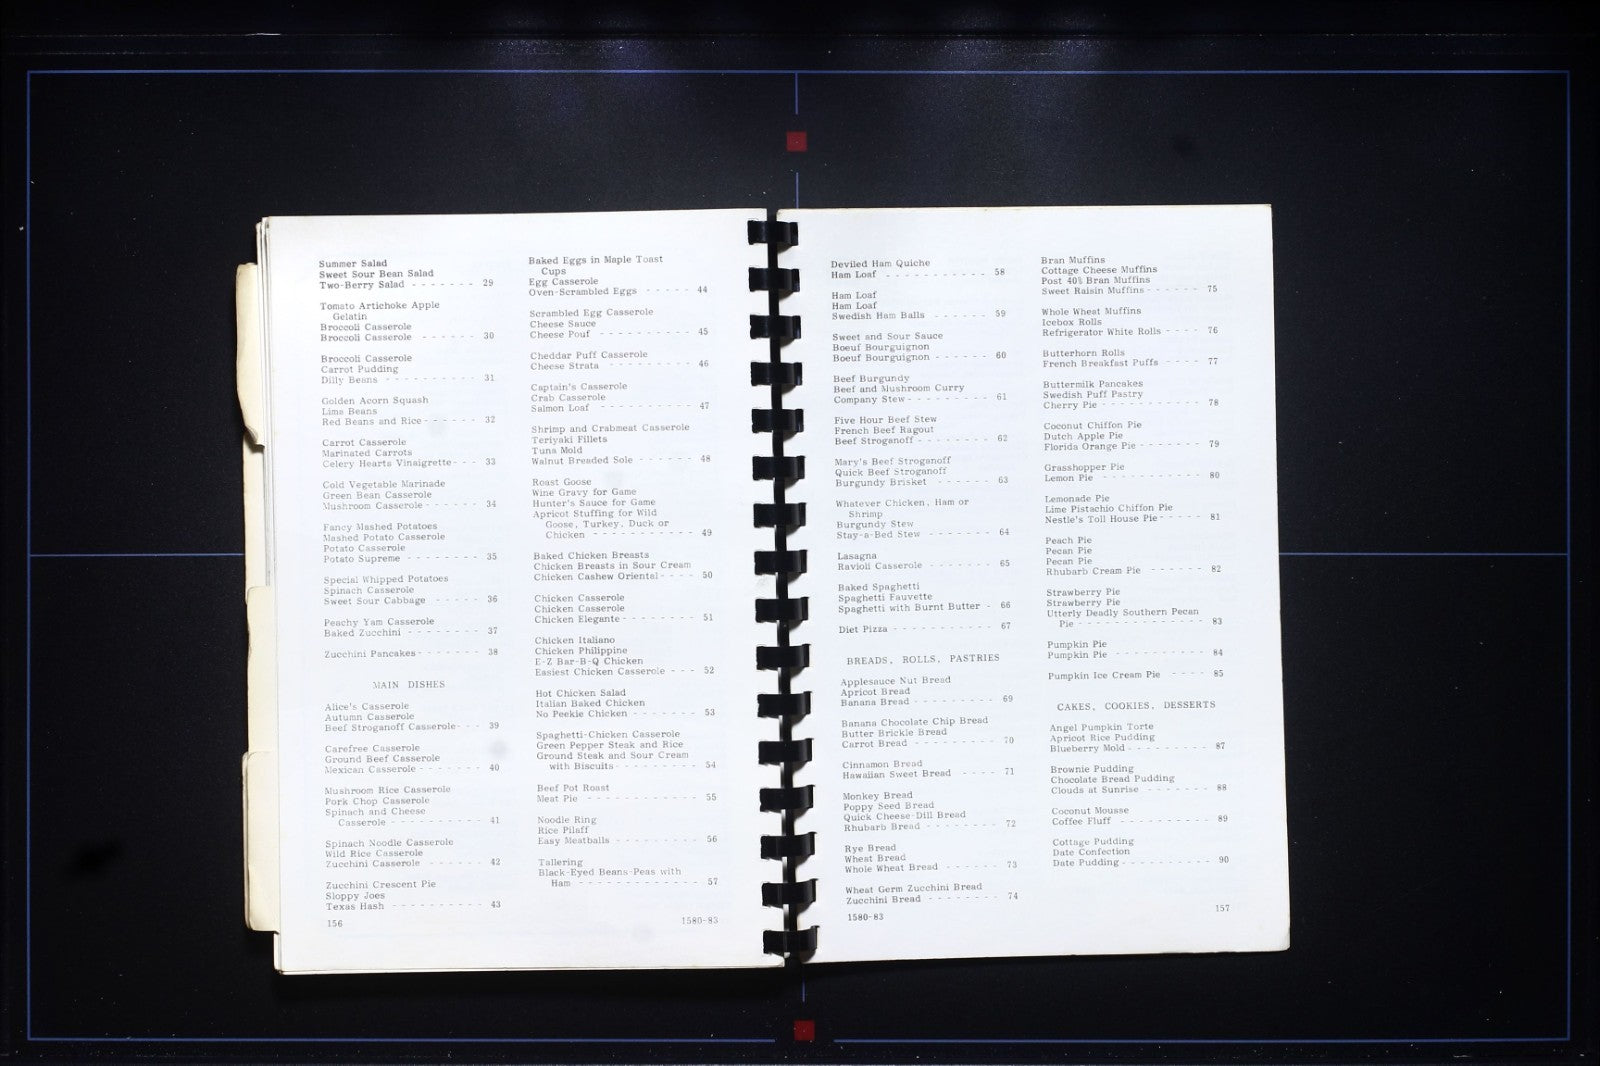 Summer Salad
Sweet Sour Bean Salad
Two-Berry Salad - - - - - - - 29
Tomato Artichoke Apple
Gelatin
Broccoli Casserole
Broccoli Casserole - - - - - - 30
Broccoli Casserole
Carrot Pudding
Dilly Beans - - - - - - - - - - 31
Golden Acorn Squash
Lima Beans
Red Beans and Rice - - - - - - 32
Carrot Casserole
Marinated Carrots
Celery Hearts Vinaigrette - - - 33
Cold Vegetable Marinade
Green Bean Casserole
Mushroom Casserole - - - - - - 34
Fancy Mashed Potatoes
Mashed Potato Casserole
Potato Casserole
Potato Supreme - - - - - - - - 35
Special Whipped Potatoes
Spinach Casserole
Sweet Sour Cabbage - - - - - 36
Peachy Yam Casserole
Baked Zucchini - - - - - - - - 37
Zucchini Pancakes - - - - - - - 38
MAIN DISHES
Alice's Casserole
Autumn Casserole
Beef Stroganoff Casserole - - - 39
Carefree Casserole
Ground Beef Casserole
Mexican Casserole - - - - - - - 40
Mushroom Rice Casserole
Pork Chop Casserole
Spinach and Cheese
Casserole - - - - - - - - - - 41
Spinach Noodle Casserole
Wild Rice Casserole
Zucchini Casserole - - - - - - 42
Zucchini Crescent Pie
Sloppy Joes
Texas Hash - - - - - - - - - - 43
156
Baked Eggs in Maple Toast
Cups
Egg Casserole
Oven-Scrambled Eggs - - - - - 44
Scrambled Egg Casserole
Cheese Sauce
Cheese Pouf - - - - - - - - - - 45
Cheddar Puff Casserole
Cheese Strata - - - - - - - - - 46
Captain's Casserole
Crab Casserole
Salmon Loaf - - - - - - - - - - 47
Shrimp and Crabmeat Casserole
Teriyaki Fillets
Tuna Mold
Walnut Breaded Sole - - - - - - 48
Roast Goose
Wine Gravy for Game
Hunter's Sauce for Game
Apricot Stuffing for Wild
Goose, Turkey, Duck or
Chicken - - - - - - - - - - - 49
Baked Chicken Breasts
Chicken Breasts in Sour Cream
Chicken Cashew Oriental - - - - 50
Chicken Casserole
Chicken Casserole
Chicken Elegante - - - - - - - - 51
Chicken Italiano
Chicken Philippine
E-Z Bar-B-Q Chicken
Easiest Chicken Casserole - - - 52
Hot Chicken Salad
Italian Baked Chicken
No Peekie Chicken - - - - - - - 53
Spaghetti-Chicken Casserole
Green Pepper Steak and Rice
Ground Steak and Sour Cream
with Biscuits - - - - - - - - - 54
Beef Pot Roast
Meat Pie - - - - - - - - - - - - 55
Noodle Ring
Rice Pilaff
Easy Meatballs - - - - - - - - - 56
Tallering
Black-Eyed Beans-Peas with
Ham - - - - - - - - - - - - - 57
1580-83
Deviled Ham Quiche
Ham Loaf - - - - - - - - - - - 58
Ham Loaf
Ham Loaf
Swedish Ham Balls - - - - - - 59
Sweet and Sour Sauce
Boeuf Bourguignon
Boeuf Bourguignon - - - - - - 60
Beef Burgundy
Beef and Mushroom Curry
Company Stew - - - - - - - - - 61
Five Hour Beef Stew
French Beef Ragout
Beef Stroganoff - - - - - - - - 62
Mary's Beef Stroganoff
Quick Beef Stroganoff
Burgundy Brisket - - - - - - 63
Whatever Chicken, Ham or
Shrimp
Burgundy Stew
Stay-a-Bed Stew - - - - - - - 64
Lasagna
Ravioli Casserole - - - - - - - 65
Baked Spaghetti
Spaghetti Fauvette
Spaghetti with Burnt Butter - 66
Diet Pizza - - - - - - - - - - - 67
BREADS, ROLLS, PASTRIES
Applesauce Nut Bread
Apricot Bread
Banana Bread - - - - - - - - - 69
Banana Chocolate Chip Bread
Butter Brickle Bread
Carrot Bread - - - - - - - - - 70
Cinnamon Bread
Hawaiian Sweet Bread - - - - 71
Monkey Bread
Poppy Seed Bread
Quick Cheese-Dill Bread
Rhubarb Bread - - - - - - - - 72
Rye Bread
Wheat Bread
Whole Wheat Bread - - - - - - 73
Wheat Germ Zucchini Bread
Zucchini Bread - - - - - - - - 74
1580-83
Bran Muffins
Cottage Cheese Muffins
Post 40% Bran Muffins
Sweet Raisin Muffins - - - - - - 75
Whole Wheat Muffins
Icebox Rolls
Refrigerator White Rolls - - - - 76
Butterhorn Rolls
French Breakfast Puffs - - - - 77
Buttermilk Pancakes
Swedish Puff Pastry
Cherry Pie - - - - - - - - - - - 78
Coconut Chiffon Pie
Dutch Apple Pie
Florida Orange Pie - - - - - - - 79
Grasshopper Pie
Lemon Pie - - - - - - - - - - - 80
Lemonade Pie
Lime Pistachio Chiffon Pie
Nestle's Toll House Pie - - - - - 81
Peach Pie
Pecan Pie
Pecan Pie
Rhubarb Cream Pie - - - - - - 82
Strawberry Pie
Strawberry Pie
Utterly Deadly Southern Pecan
Pie - - - - - - - - - - - - - - 83
Pumpkin Pie
Pumpkin Pie - - - - - - - - - - 84
Pumpkin Ice Cream Pie - - - - 85
CAKES, COOKIES, DESSERTS
Angel Pumpkin Torte
Apricot Rice Pudding
Blueberry Mold - - - - - - - - - 87
Brownie Pudding
Chocolate Bread Pudding
Clouds at Sunrise - - - - - - - 88
Coconut Mousse
Coffee Fluff - - - - - - - - - - 89
Cottage Pudding
Date Confection
Date Pudding - - - - - - - - - - 90
157